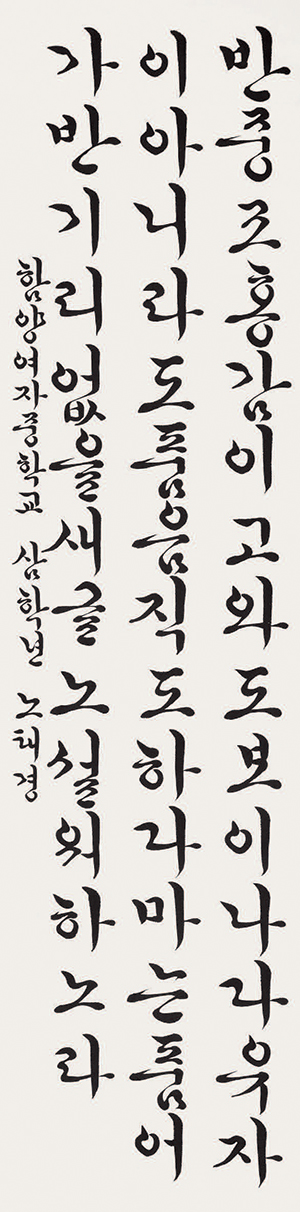 반중조홍감이고와도보이나다유자
이아니라도품음직도하다마는품어
가반기리없을새글노설워하노라
함양여자중학교 삼학년 노태경